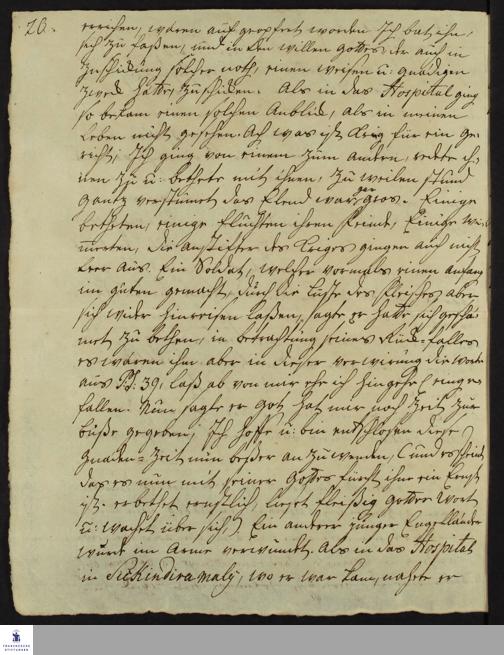 20.
erreichen, waren auf geopfert worden Ich bat ihn,
sich zu faßen, und in den willen Gottes der auch in
Zuschickung solcher noth, einen weisen u: gnädigen
Zweck hätte, zu schicken. Als in das Hospital ging
so bekam einen solchen Anblick, als in meinen
Leben nicht gesehen. Ach was ist Krieg für ein Ge-
richt; Ich ging von einem zum andern, redete ih-
nen zu u: bethete mit ihnen, zu weilen stund
gantz verstumt das Elend war gar gros. Einige
betheten, einige fluchten ihren Feinde, Einige wi-
merten, die Anstifter des Kriges gingen auch nicht
leer aus. Ein Soldat, welcher vormals einen Anfang
im guten gemacht, durch die Lüste des Fleisches aber
sich wider hinreißen laßen, sagte er hätte sich geschä-
met zu bethen, in betrachtung seines Rück-falles
es wären ihm aber in dieser verwirrung die worte
aus Ps: 39, laß ab von mir ehe ich hingehe p einge-
fallen. Nun sagte er Gott hat mir noch Zeit zur
buße gegeben, Ich hoffe u: bin entschloßen diese
Gnaden-Zeit nun beßer an zu wenden, (und es scheint
das es nun mit seiner Gottes furcht ihm ein Ernst
ist. er bethet ernstlich, lieset fleißig Gottes Wort
u: wachet über sich.) Ein anderer junger Engelländer
wurde im Arme verwundet. Als in das Hospital
in Sickindiramaly, wo er war kam, nahete er
FRANCKESCHE
STIFTUNGEN